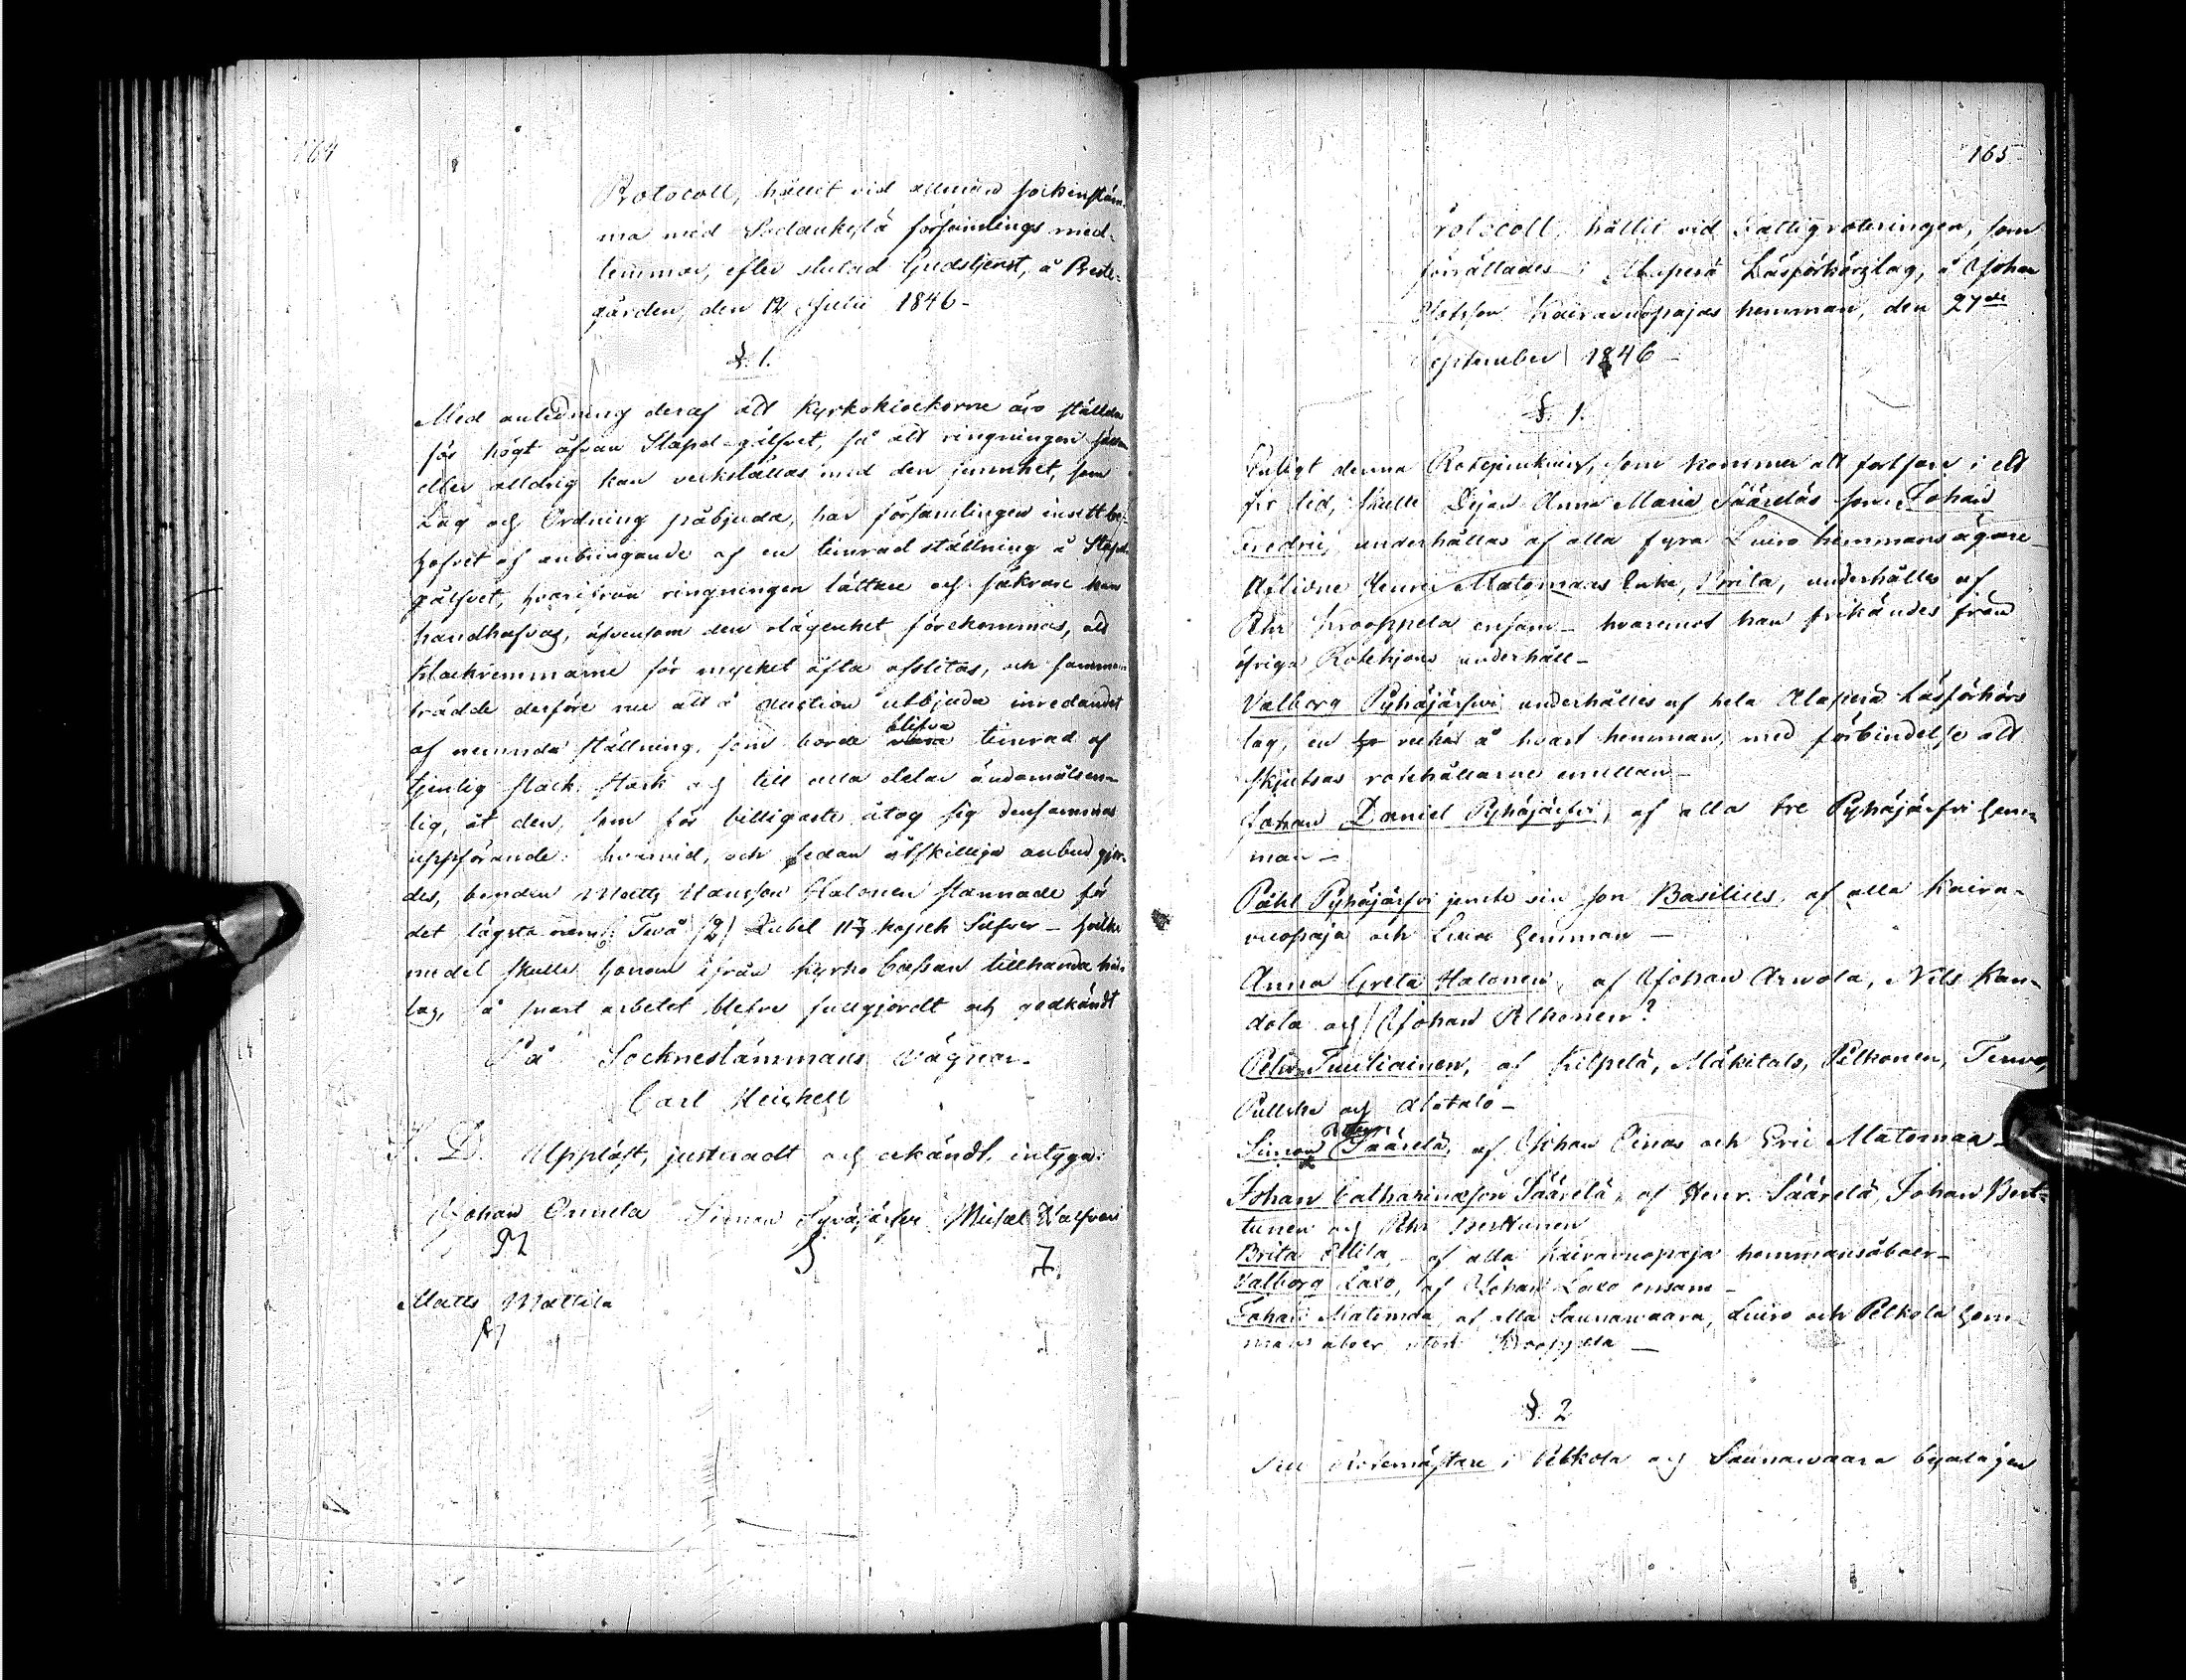 164
Protocoll, hållit vid allmän sockenstäm-
ma med Sodankylä församlings med-
lemmar, efter slutad Gudstjenst, å Preste-
gården, den 12 Julii 1846-
§. 1.
Med anledning deraf att Kyrkoklockorne äro ställda
för högt åfvan Stapel-gålfvet, så att ringningen sällan
eller alldrig kan verkställas med den jemnhet, som
Lag och Ordning påbjuda, har församlingen insett be-
hofvet af anbringande af en timrad ställning å Stapel-
gålfvet, hvarifrån ringningen lättare och säkrare kan
handhafvas, äfvensom den olägenhet förekommas, att
klockremmarne för mycket ofta afslitas, och samman-
trädde derföre nu att å auction utbjuda inredandet
af nemnda ställning, som borde blifva timrad af
tjenlig stock, stark och till alla delar ändamålsen-
lig, åt den, som för billigaste åtog sig densammas
uppförande: hvarvid, och sedan åtskilliga anbud gjor-
des, bonden Matts Hansson Halonen stannade för
det lägsta neml. Två /2/ Rubel kopek Silfver - hvilka
medel skulle honom ifrån kyrko Cassan tillhanda hål-
las, så snart arbetet blefve fullgjordt och godkändt
På Socknestämmans vägnar.
Carl Heickell
S. D. Uppläst, justeradt och erkändt, intyga:
Johan Simon Michael
Matts Mattila
165
Protocoll, hållit vid Fattigroteringen, som
förrättades i Alaperä Läsförhörslag, å Johan
Kairavuopajas hemman, den 27de
September 1846-
§. 1.
Enligt denna som kommer att fortfara i ett
års tid, skulle Pigan Anna Maria Sääreläs son Johan
Fredric, underhållas af alla fyra Luiro hemmansägare-
Aflidne Henric Matomaas Enka, Brita, underhålles af
Pehr Krooppela ensam - hvaremot han frikändes från
öfriga Rotehjons underhåll-
Valborg Pyhäjärfvi underhålles af hela Alaperä Läsförhörs
lag, en vecka å hvart hemman, med förbindelse att
skjutsas rotehållarne emellan-
Johan Daniel Pyhäjärfvi, af alla tre Pyhäjärfvi hem-
man -
Påhl Pyhäjärfvi jemte sin son Basilius, af alla Kaira-
vuopaja och Luiro hemman -
Anna Greta Halonen, af Johan Arvola, Nils Kan-
dola och Johan
Pehr Tuuliainen, af Kilpelä, Mäkitalo, Pelkonen, Tervo,
och Alatalo-
Simon Säärelä, af Johan och Eric Matomaa-
Johan Catharinæson Säärelä, af Henr. Säärelä, Johan Bert-
tunen och Pehr Berttunen
Brita Ellila, af alla Kairavuopaja hemmansåboer-
Valborg Laxo, af Johan Laxo ensam-
Johan Matomaa, af alla Saunavaara, Luiro och Pelkola hem-
mans åboer utom Krooppela -
§. 2
Till Rotemästare i Pelkola och Saunavaara byalägen